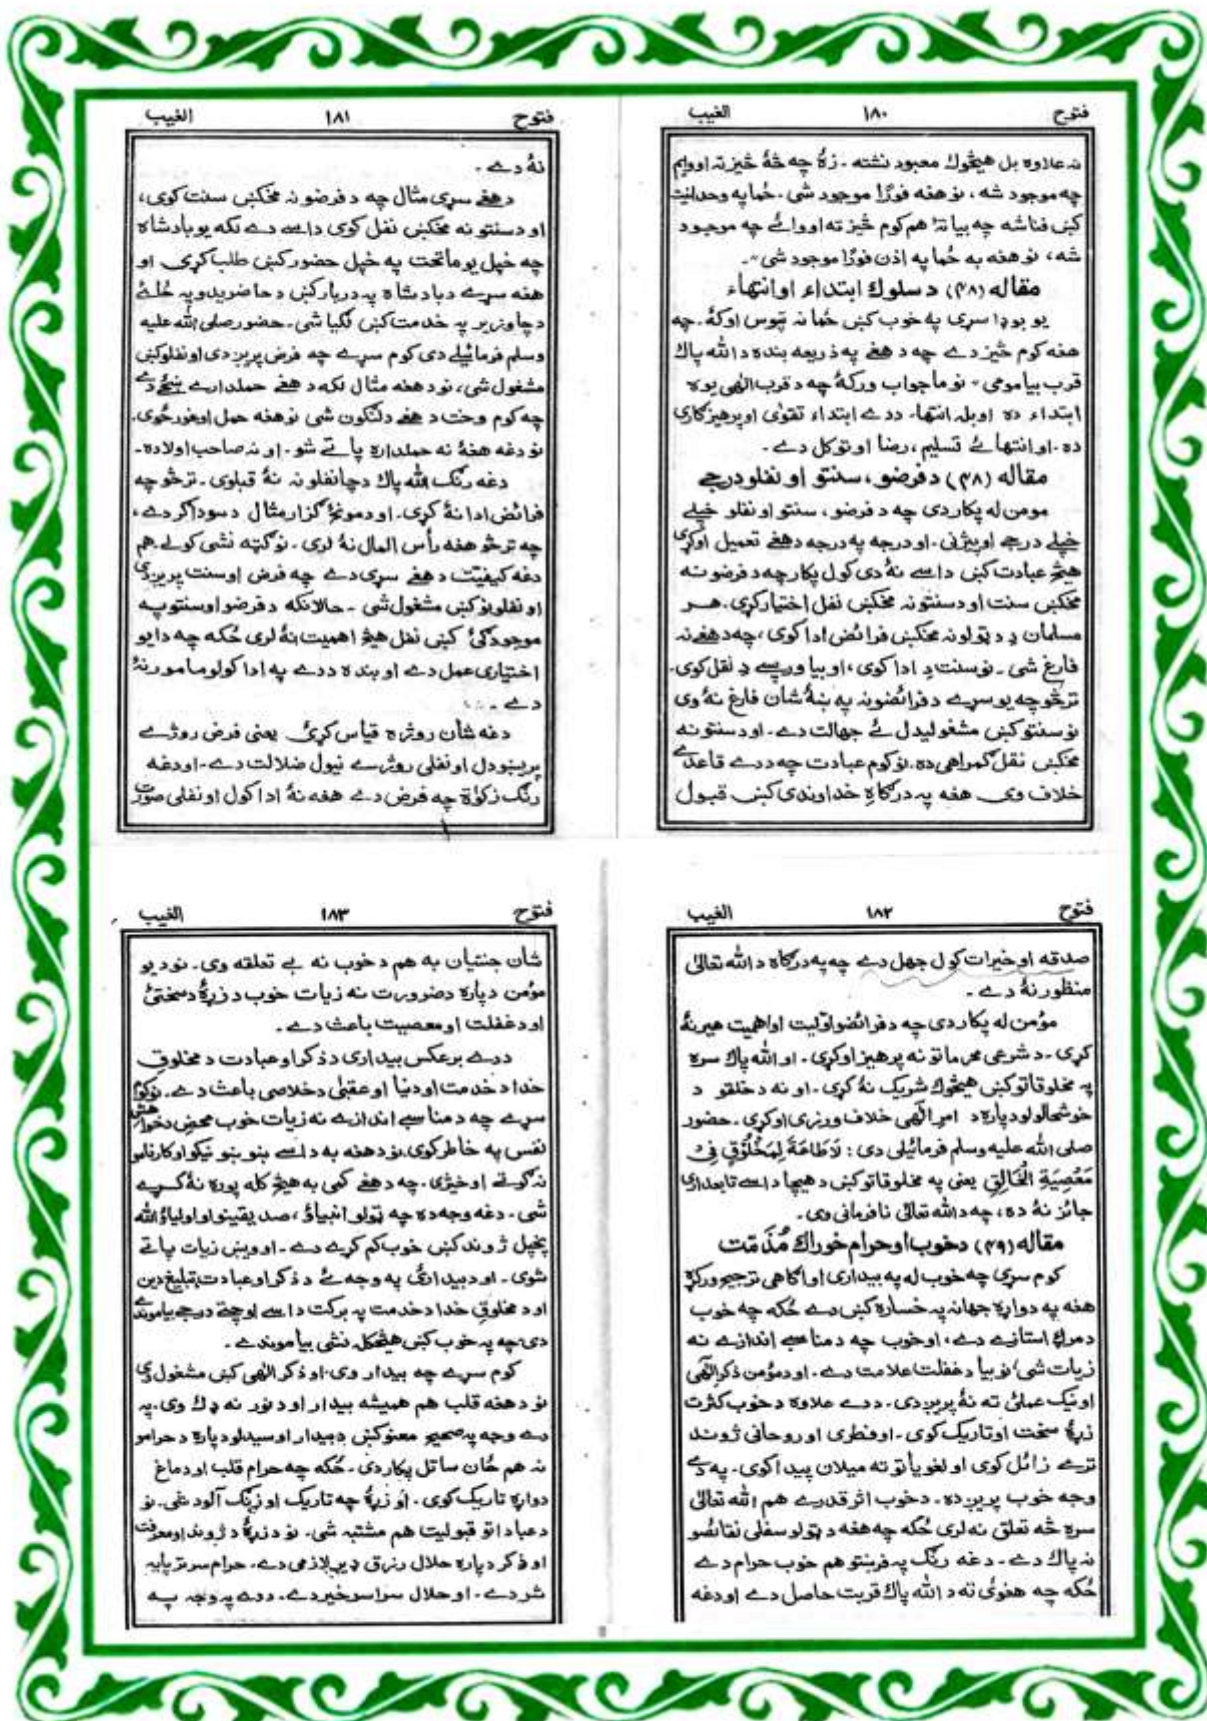 فتوح ١٨٠ الغیب
نہ علاوہ بل هیڅوك معبود نشته ـ زۀ چه څۀ څیز ته اووایم
چه موجود شه، نو هغه فورًا موجود شی ـ خُما په وحدانیت
کښ فنا شه چه بیا تۀ هم کوم څیز ته اووائے چه موجود
شه، نو هغه به خُما په اذن فورًا موجود شی"ـ
مقاله (۴۸) د سلوك ابتداء او انتهاء
یو بوډا سړی په خوب کښ خُما نہ تپوس اوکۀ ـ چه
هغه کوم څیز دے چه د هغے په ذریعه بنده د الله پاك
قرب بیا مومی" نو ما جواب ورکۀ چه د قرب الٰهی یوه
ابتداء ده او بله انتها ـ ددے ابتداء تقوٰی او پرهیزګاری
ده ـ او انتهائے تسلیم، رضا او توکل دے ـ
مقاله (۴۸) د فرضو، سنتو او نفلو درجے
مومن له پکار دی چه د فرضو، سنتو او نفلو خپلے
خپلے درجے اوپیژنی ـ او درجه په درجه د هغے تعمیل اوکړی
هیڅ عبادت کښ داسے نۀ دی کول پکار چه د فرضو نه
مخکښ سنت او د سنتو نه مخکښ نفل اختیار کړی ـ هر
مسلمان دِ د ټولو نه مخکښ فرائض ادا کوی، چه د هغے نه
فارغ شی ـ نو سنت دِ ادا کوی، او بیا ورپسے دِ نفل کوی ـ
ترڅو چه یو سړے د فرائضو نه په ښۀ شان فارغ نۀ وی
نو سنتو کښ مشغولیدل ئے جهالت دے ـ او د سنتو نه
مخکښ نفل ګمراهی ده ـ نو کوم عبادت چه ددے قاعدے
خلاف وی هغه په درګاهِ خداوندی کښ قبول
فتوح ١٨١ الغیب
نۀ دے ـ
د هغے سړی مثال چه د فرضو نه مخکښ سنت کوی،
او د سنتو نه مخکښ نفل کوی داسے دے لکه یو بادشاه
چه خپل یو ماتحت په خپل حضور کښ طلب کړی او
هغه سړے د بادشاه په دربار کښ د حاضریدو په ځائے
د چا وزیر په خدمت کښ لګیا شی ـ حضور صلی الله علیه
وسلم فرمائیلے دی کوم سړے چه فرض پریږدی او نفلو کښ
مشغول شی، نو د هغه مثال لکه د هغے حملدارے ښځے دے
چه کوم وخت د هغے د لنګون شی نو هغه حمل اوغورځوی ـ
نو دغه هغۀ نه حملداره پاتے شو ـ او نه صاحب اولاده ـ
دغه رنګ الله پاك د چا نفلونه نۀ قبلوی ـ ترڅو چه
فرائض ادا نۀ کړی ـ او د مونځ ګزار مثال د سوداګر دے،
چه ترڅو هغه رأس المال نۀ لری ـ نو ګټه نشی کولے هم
دغه کیفیت د هغے سړی دے چه فرض او سنت پریږدی
او نفلونو کښ مشغول شی ـ حالانکه د فرضو او سنتو په
موجودګئ کښ نفل هیڅ اهمیت نۀ لری ځکه چه دا یو
اختیاری عمل دے او بنده ددے په ادا کولو مامور نۀ
دے ـ
دغه شان روژه قیاس کړئ یعنی فرض روژے
پریښودل او نفلی روژے نیول ضلالت دے ـ او دغه
رنګ زکوٰة چه فرض دے هغه نۀ ادا کول او نفلی صورت
فتوح ١٨٢ الغیب
صدقه او خیرات کول جهل دے چه په درګاه د الله تعالیٰ
منظور نۀ دے ـ
مؤمن له پکار دی چه د فرائضو اوّلیت او اهمیت هیر نۀ
کړی ـ د شرعی محرماتو نه پرهیز اوکړی ـ او الله پاك سره
په مخلوقاتو کښ هیڅوك شریک نۀ کړی ـ او نه د خلقو د
خوشحالولو دپاره د امرِ الٰهی خلاف ورزی اوکړی ـ حضور
صلی الله علیه وسلم فرمائیلی دی : لَا طَاعَةَ لِمَخْلُوْقٍ فِیْ
مَعْصِيَةِ الْخَالِقِ یعنی په مخلوقاتو کښ د هیچا داسے تابعداری
جائز نۀ ده، چه د الله تعالیٰ نافرمانی وی ـ
مقاله (۴۹) د خوب او حرام خوراك مُذَمّت
کوم سړی چه خوب له په بیداری او اګاهی ترجیح ورکړه
هغه په دواړه جهانه په خساره کښ دے ځکه چه خوب
د مرګ استازے دے، او خوب چه د مناسبے اندازے نه
زیات شی، نو بیا د غفلت علامت دے ـ او د مؤمن ذکر الٰهی
او نیک عملئ ته نۀ پریږدی ـ ددے علاوه د خوب کثرت
زړۀ سخت او تاریک کوی ـ او فطری او روحانی ژوند
ترے زائل کوی او لغویاتو ته میلان پیدا کوی ـ په دے
وجه خوب پریږده ـ د خوب اثر قدرے هم الله تعالیٰ
سره څه تعلق نه لری ځکه چه هغه د ټولو سفلی نقائصو
نه پاك دے ـ دغه رنګ په فرښتو هم خوب حرام دے
ځکه چه هغوئ ته د الله پاك قربت حاصل دے او دغه
فتوح ١٨٣ الغیب
شان جنتیان به هم د خوب نه بے تعلقه وی ـ نو د یو
مؤمن دپاره د ضرورت نه زیات خوب د زړۀ د سختئ
او د غفلت او معصیت باعث دے ـ
ددے برعکس بیداری د ذکر او عبادت د مخلوقِ
خدا د خدمت او دنیا او عقبیٰ د خلاصی باعث دے ـ نو کوم
سړے چه د مناسبے اندازے نه زیات خوب محض د خواهش
نفس په خاطر کوی نو د هغه به داسے ښو ښو نیکو او کارنامو
نه ګوتے اوځیژی ـ چه د هغے کمی به هیڅ کله پوره نۀ کړے
شی ـ دغه وجه ده چه ټولو انبیاؤ، صدیقینو او اولیاؤ الله
پخپل ژوند کښ خوب کم کړے دے ـ او ویښ زیات پاتے
شوی ـ او د بیدارئ په وجه ئے د ذکر او عبادت، تبلیغ دین
او د مخلوقِ خدا د خدمت په برکت داسے اوچتے درجے بیاموندے
دی، چه په خوب کښ هیڅکله نشی بیاموندے ـ
کوم سړے چه بیدار وی، او ذکر الٰهی کښ مشغول وی
نو د هغه قلب هم همیشه بیدار او د نور نه ډك وی ـ په
دے وجه په صحیح معنو کښ د بیدار اوسیدلو دپاره د حرامو
نه هم ځان ساتل پکار دی ـ ځکه چه حرام قلب او دماغ
دواړه تاریک کوی ـ او زړۀ چه تاریک او زنګ آلود شی ـ نو
د عباداتو قبولیت هم مشتبه شی ـ نو د زړۀ د ژوند او معرفت
او ذکر دپاره حلال رزق ډیر لازمی دے ـ حرام سر تر پایه
شر دے ـ او حلال سراسر خیر دے ـ ددے په وجه په